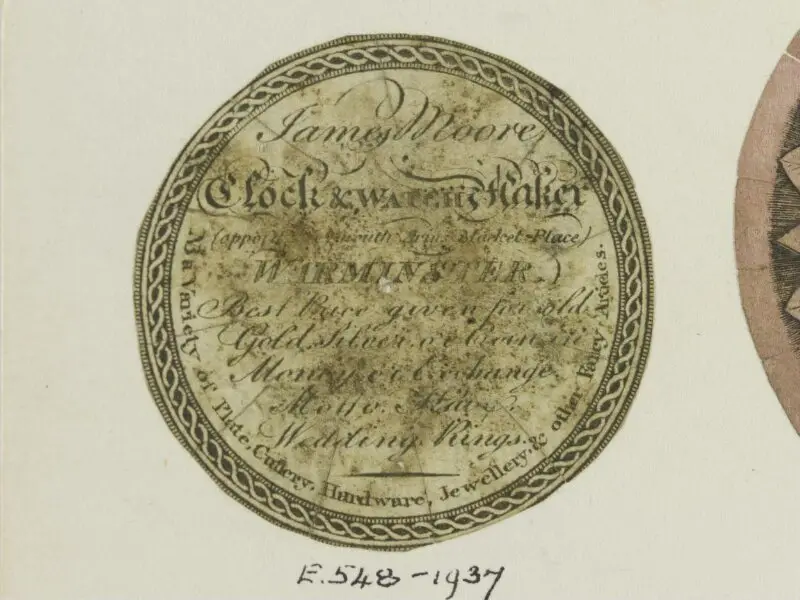 James Moore,
Clock & WATCH Maker
(opposite Market-Place)
WARMINSTER.
Best Price given for old
Gold, Silver, or Coin in
Money or Exchange
Wedding Rings.
A Variety of Plate, Cutlery, Hardware, Jewellery, & other Fancy Articles.
E.548-1937